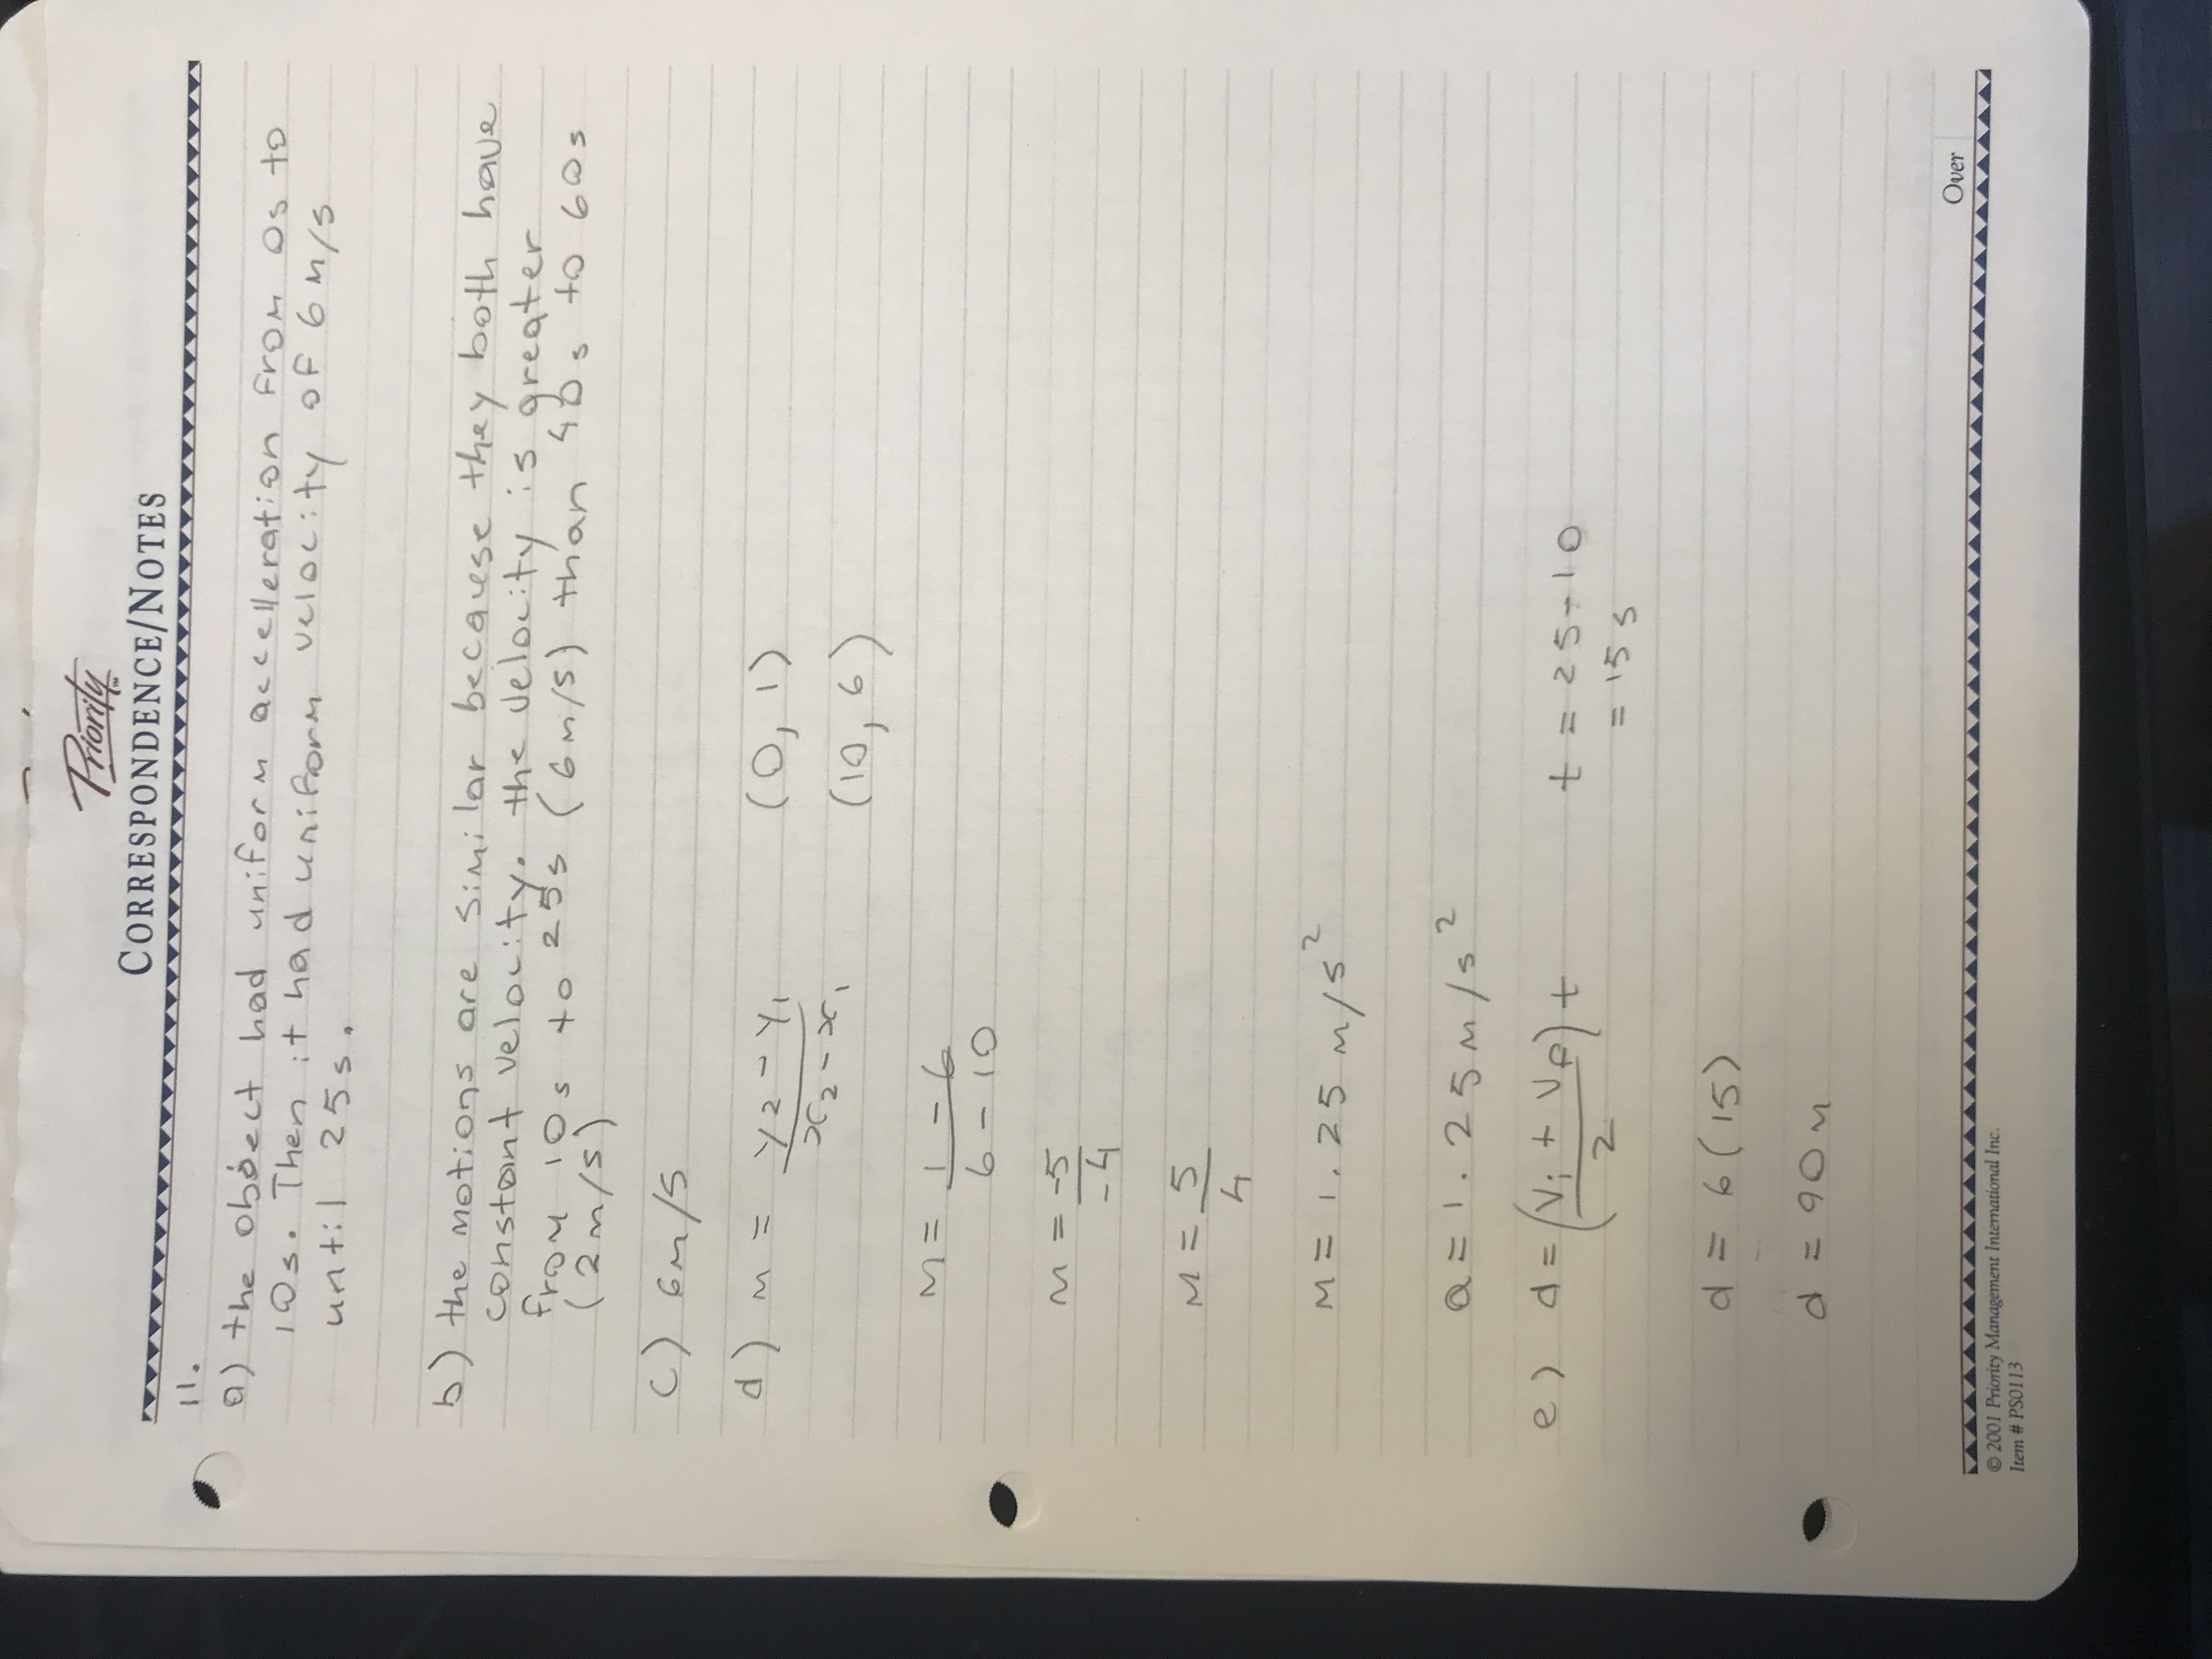 Priority™
CORRESPONDENCE/NOTES
11.
a) the object had uniform accelleration from 0s to
10s. Then it had uniform velocity of 6 m/s
until 25s.
b) the motions are similar because they both have
constant velocity. the velocity is greater
from 10s to 25s (6m/s) than 40s to 60s
(2m/s)
c) 6m/s
d) m = y2 - y1 (0, 1)
x2 - x1
(10, 6)
m = 1 - 6
6 - 10
m = -5
-4
m = 5
4
m = 1.25 m/s²
a = 1.25 m/s²
e) d = (Vi + Vf) t t = 25-10
2 = 15 s
d = 6(15)
d = 90m
Over
© 2001 Priority Management International Inc.
Item # PS0113